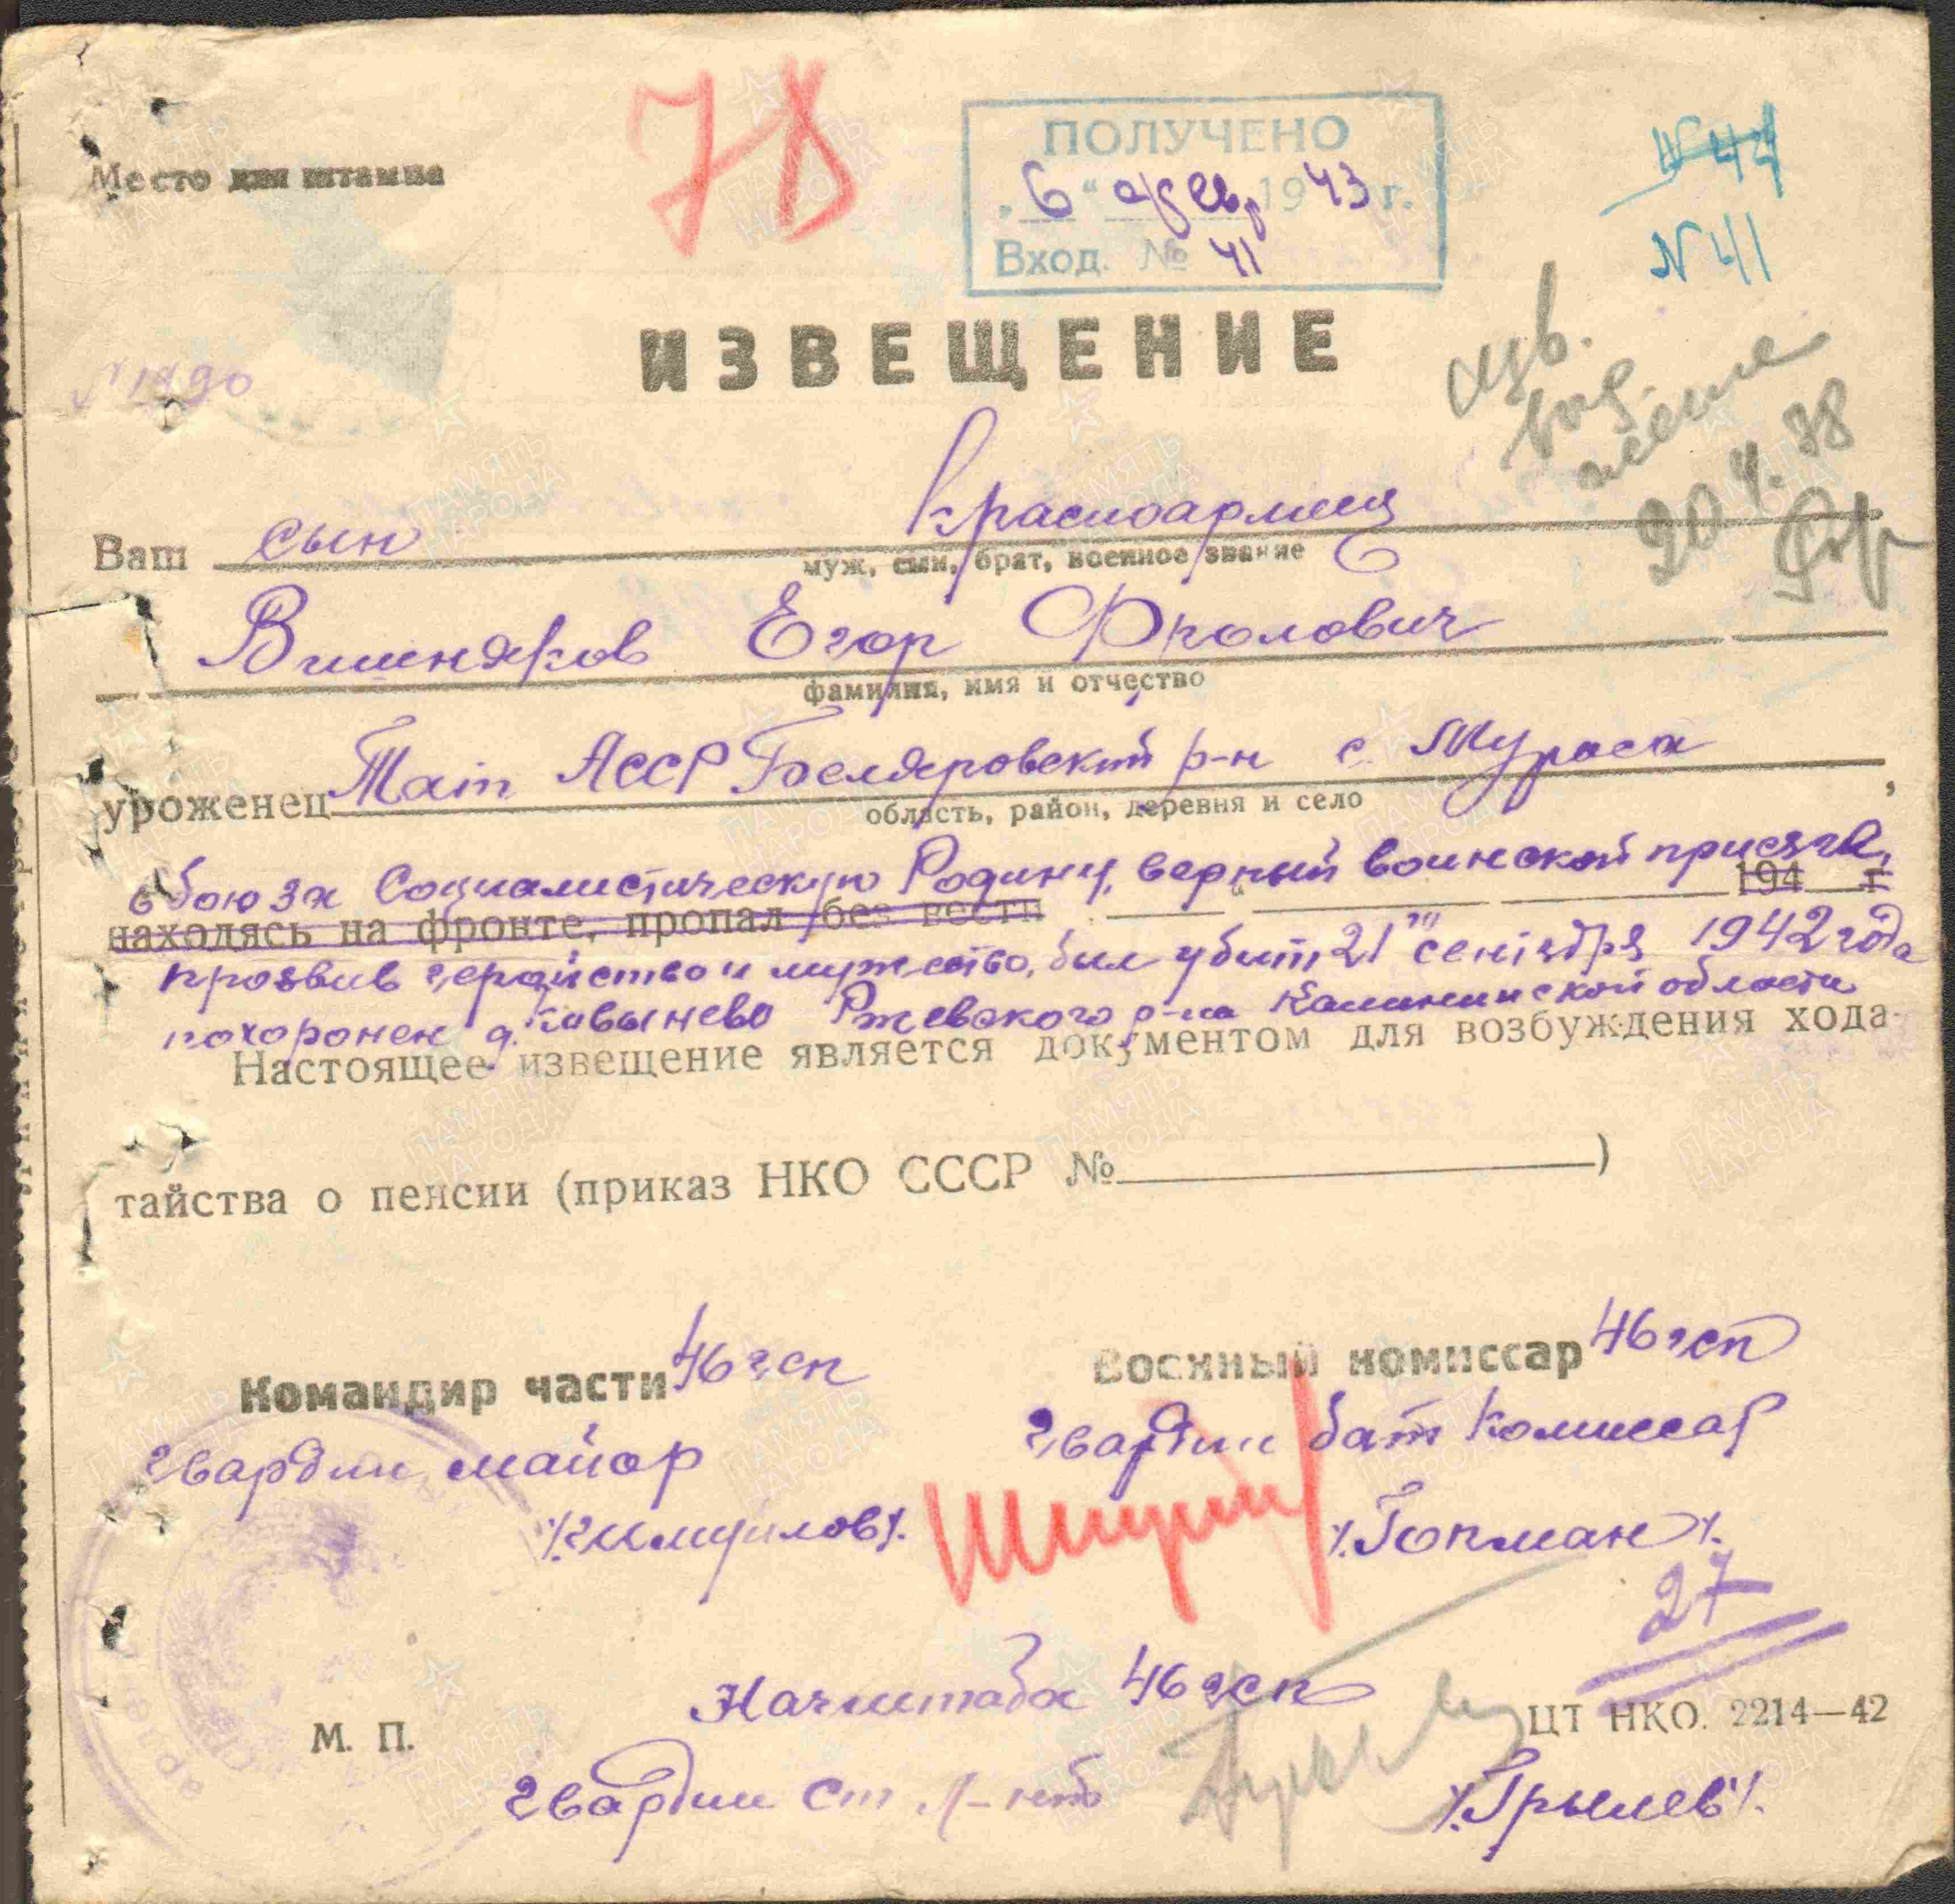 78
ПОЛУЧЕНО
"6" фев. 1943 г.
Вход. № 41
№ 44
N 41
Место для штампа
N 1490
ИЗВЕЩЕНИЕ
изв.
выд.
жене
20 4. 38
Ваш сын красноармеец
муж, сын, брат, военное звание
Вишняков Егор Фролович
фамилия, имя и отчество
уроженец Тат АССР Биляровский р-н с. Мураса,
область, район, деревня и село
в бою за Социалистическую Родину, верный воинской присяге,
находясь на фронте, пропал без вести 194 г
проявив геройство и мужество, был убит 21 сентября 1942 года
похоронен д. Ржевского р-на Калининской области
Настоящее извещение является документом для возбуждения хода-
тайства о пенсии (приказ НКО СССР № )
Командир части 46 гсп
Военный комиссар 46 гсп
гвардии майор
гвардии бат комиссар
/Гопман/.
27
Начштаба 46 гсп
М. П.
ЦТ НКО. 2214—42
гвардии ст л-нт
/Грылев/.